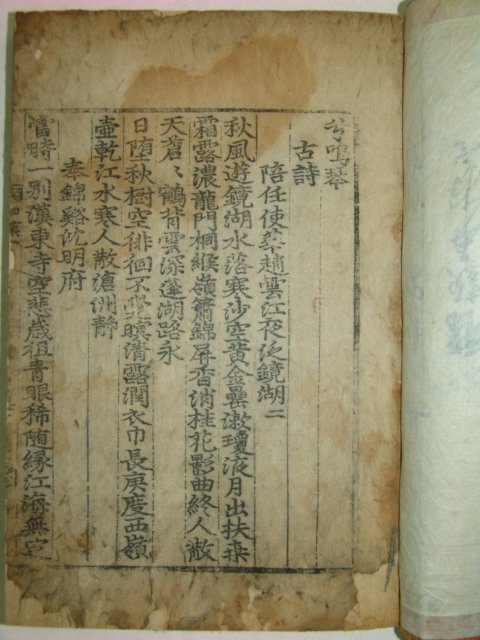 鳴琴
古詩
陪任使慕趙雲江夜泛鏡湖二
秋風遊鏡湖水落寒沙空黃金罍漱瓊液月出扶桒
霜露濃龍門桐緱嶺簫錦屏香消桂花影曲終人散
天蒼〻鶴背雲深蓬湖路永
日墮秋樹空徘徊不覺暝淸露潤衣巾長庚度西嶺
壺乾江水寒人散滄洲靜
奉錦谿沈明府
當時一別漢東寺空悲歲徂靑眼稀隨緣江海無定